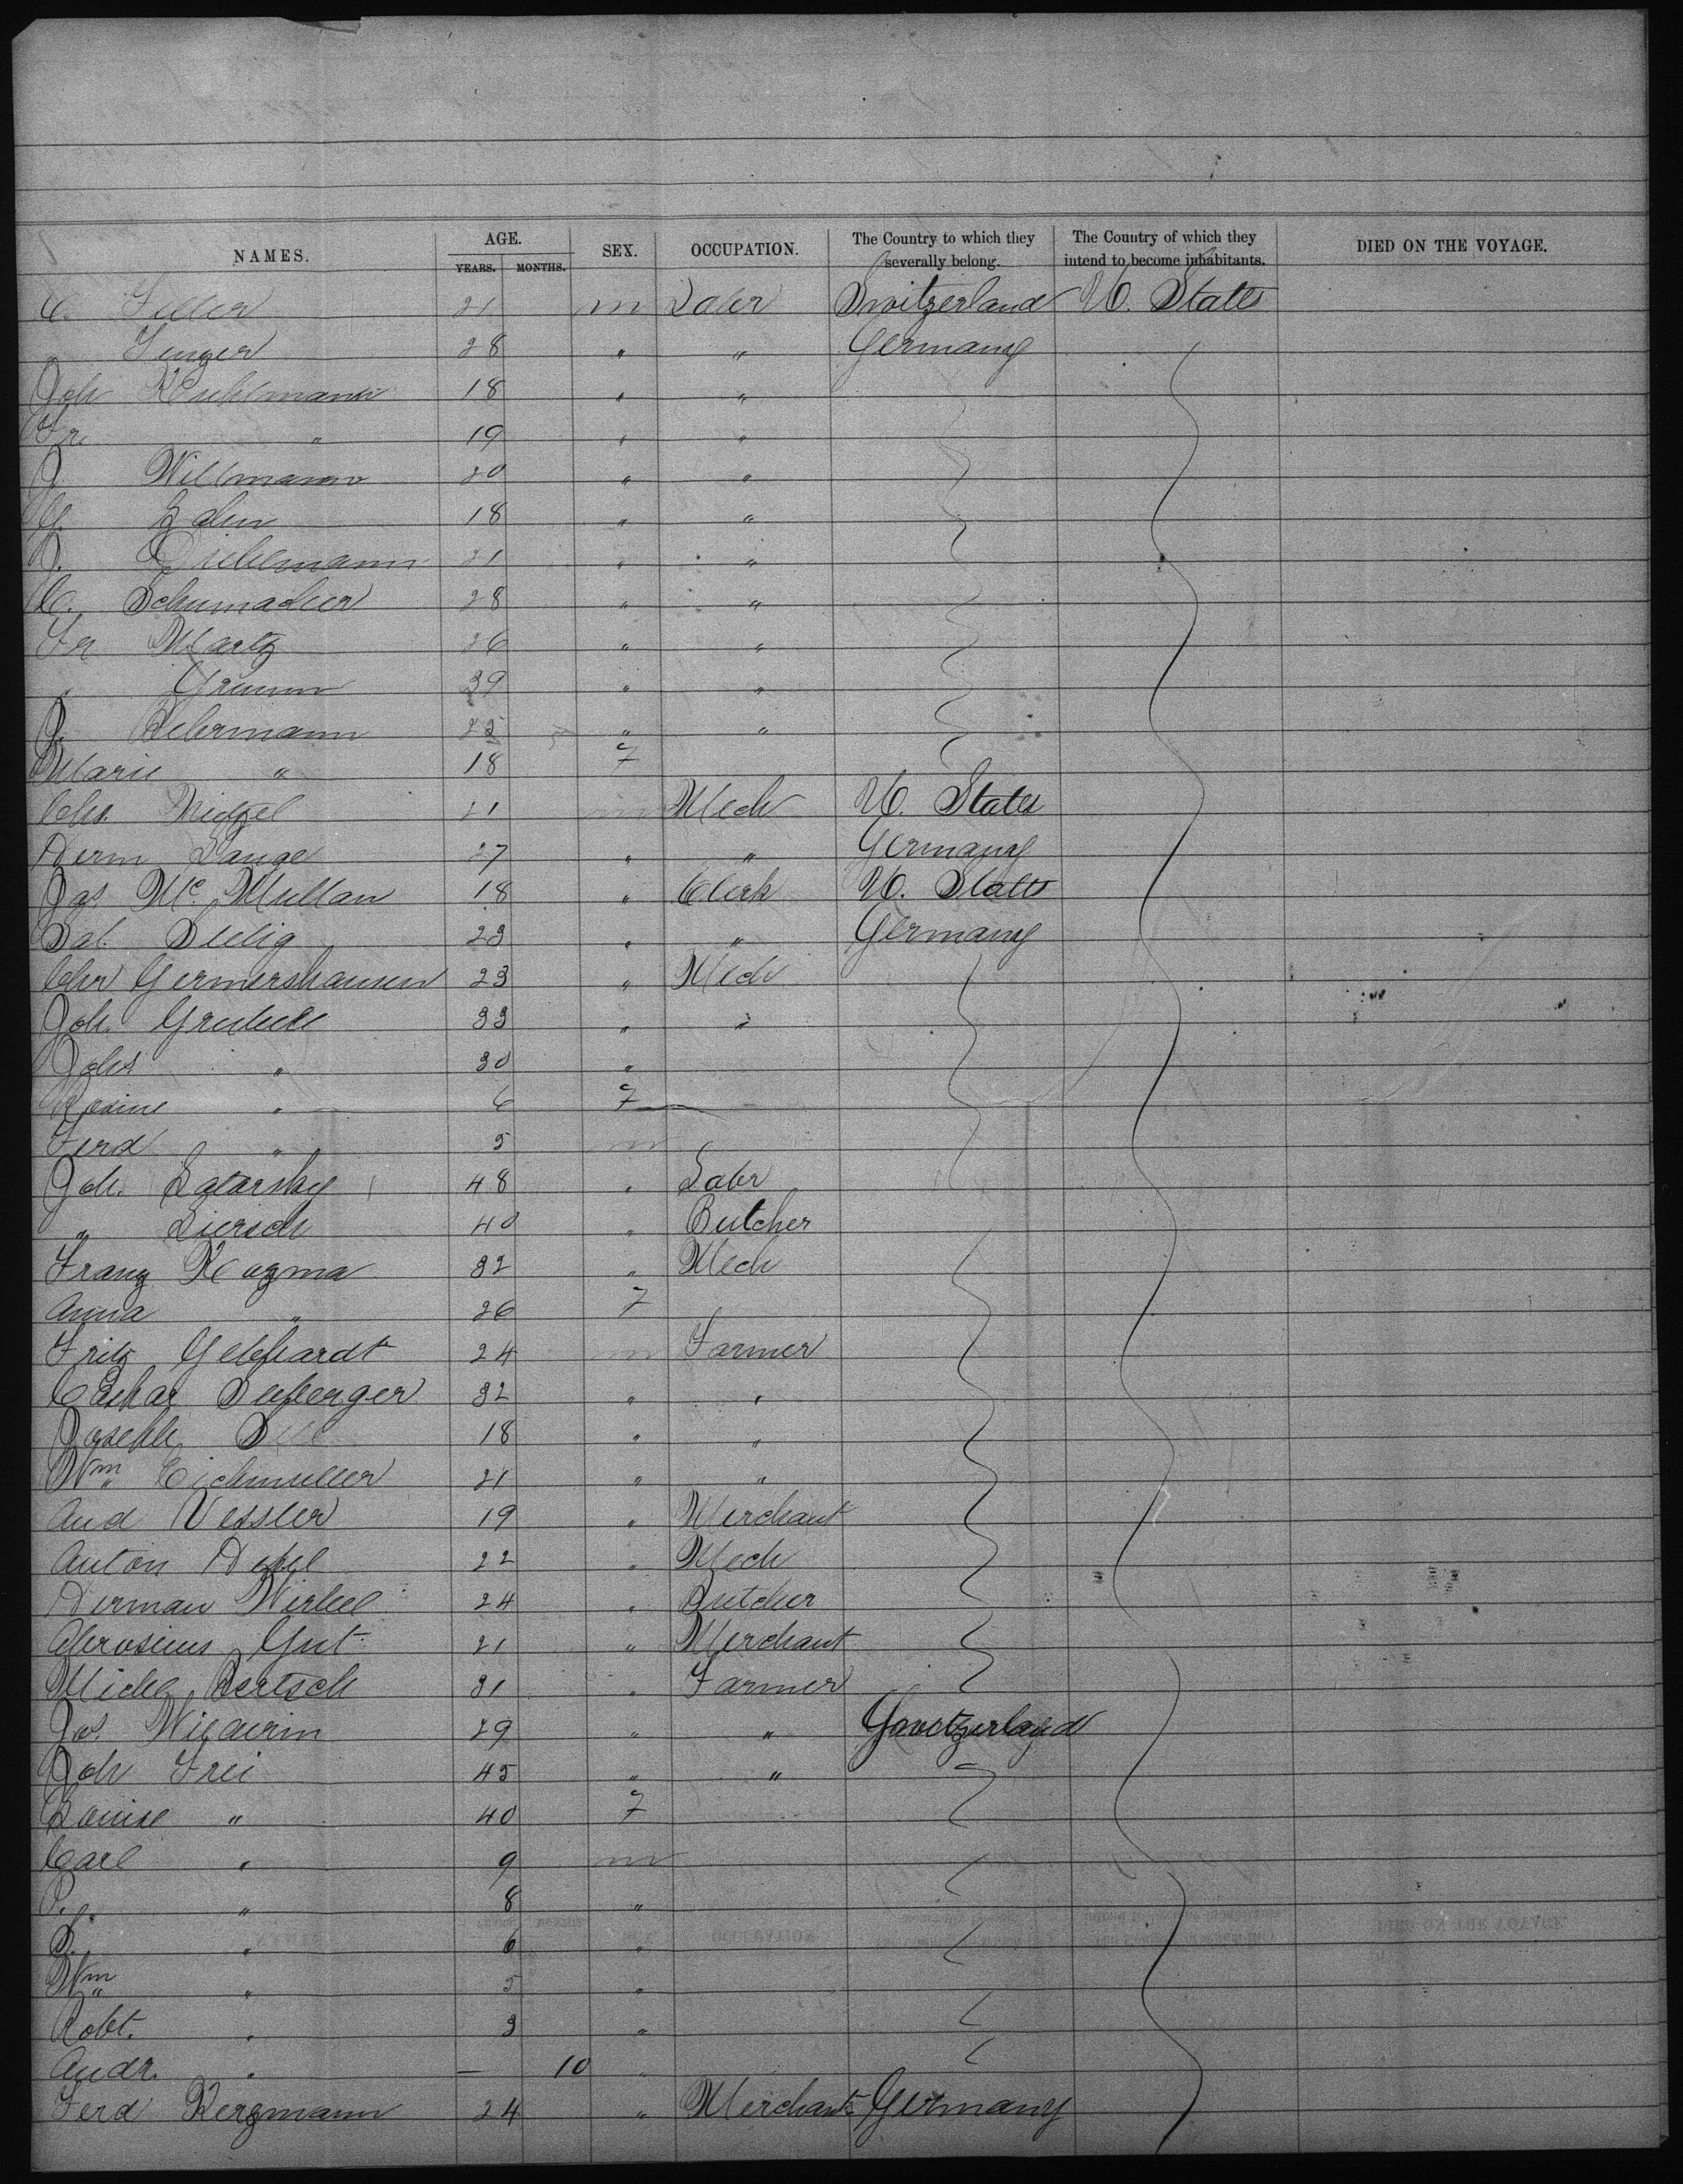 NAMES. AGE. YEARS. MONTHS. SEX. OCCUPATION. The Country to which they severally belong. The Country of which they intend to become inhabitants. DIED ON THE VOYAGE.
C. 21 m Labr Switzerland U. States
28 " " Germany
Joh Kuhlmann 18 " "
Fr. " 19 " "
J Willmann 20 " "
G. Zahn 18 " "
21 " "
C. Schumacher 28 " "
Fr Martz 26 " "
Grumm 39 " "
Behrmann 25 " "
Marie " 18 F
Chs. 21 m Mech U. States
Herm Lange 27 " " Germany
Jas McMullan 18 " Clerk U. States
Sal. Seelig 23 " " Germany
Chr Germershausen 23 " Mech
Joh. 33 " "
Johs " 30 "
Rosine " 6 F
Ferd " 5 m
Joh. 48 " Labr
" Liersch 40 " Butcher
Franz Kuzma 32 " Mech
Anna " 26 F
Fritz Gebhardt 24 m Farmer
Caspar Seeberger 32 " "
Joseph 18 " "
Wm Eichmuller 21 " "
And Vessler 19 " Merchant
Anton 22 " Mech
Herman 24 " Butcher
Gut 21 " Merchant
Michl Bertsch 31 " Farmer
Jos. 29 " " Switzerland
Joh Frei 45 " "
Louise " 40 F
Carl " 9 m
P. " 8 "
B. " 6 "
Wm " 5 "
Robt. " 3 "
Andr. " — 10 "
Ferd Bergmann 24 " Merchant Germany